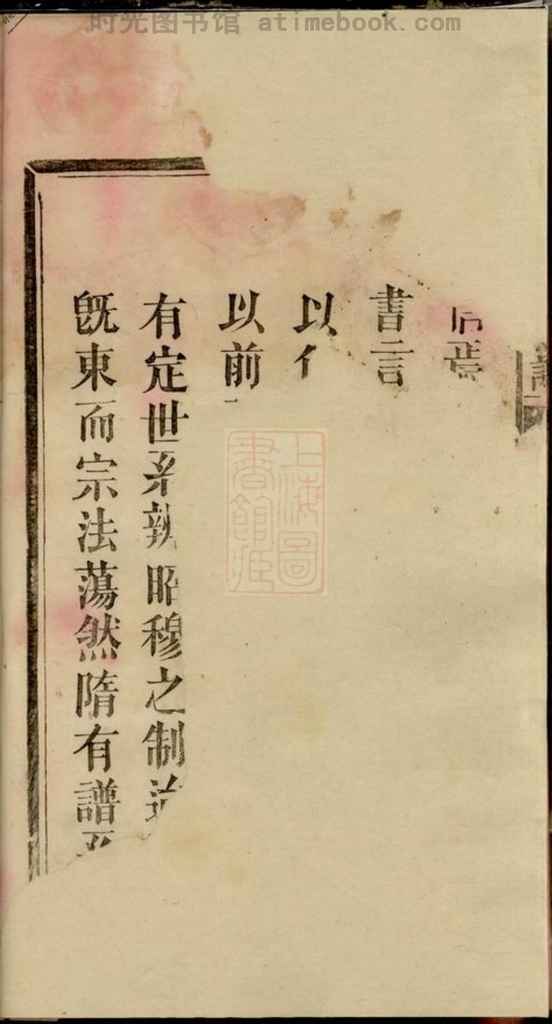 时光图书馆 atimebook.com
焉
書言
以
以前
有定世系孰昭穆之制迨
既東而宗法蕩然隋有譜
上海圖書館藏